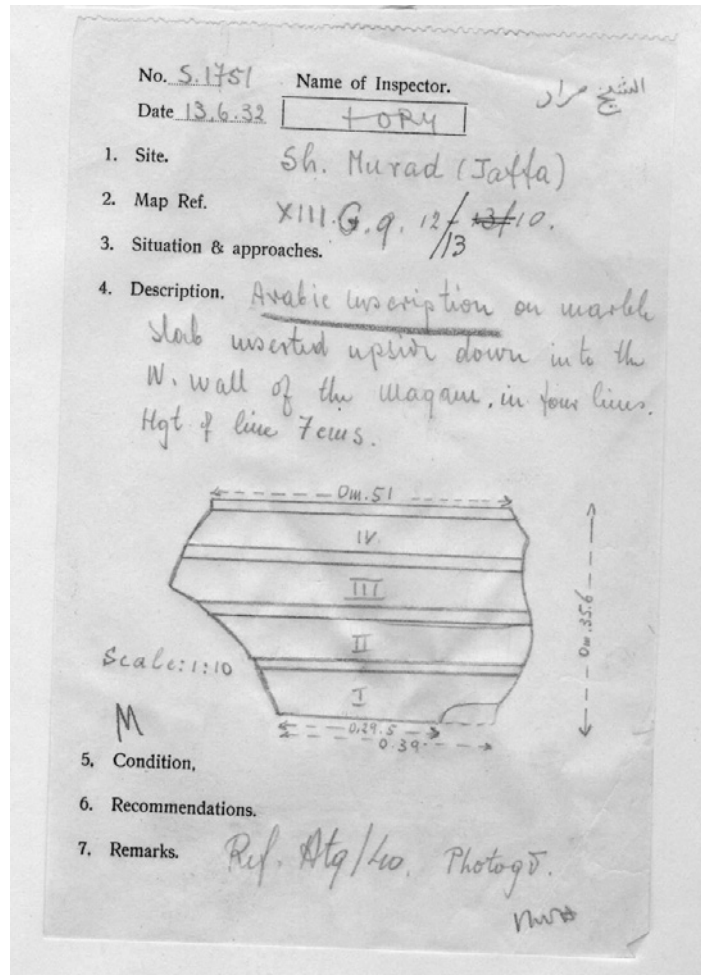 No. S.1751 Name of Inspector. الشيخ مراد
Date 13.6.32 +ORY
1. Site. Sh. Murad (Jaffa)
2. Map Ref. XIII.G.q. 12/13 - 13/10.
3. Situation & approaches.
4. Description. Arabic inscription on marble
slab inserted upside down into the
N. wall of the Maqam, in four lines.
Hgt of line 7 cms.
0m.51
IV
III
0m.35.6
II
Scale: 1:10
I
M
0.29.5
0.39
5. Condition.
6. Recommendations.
7. Remarks. Ref. Atq/40. Photogd.